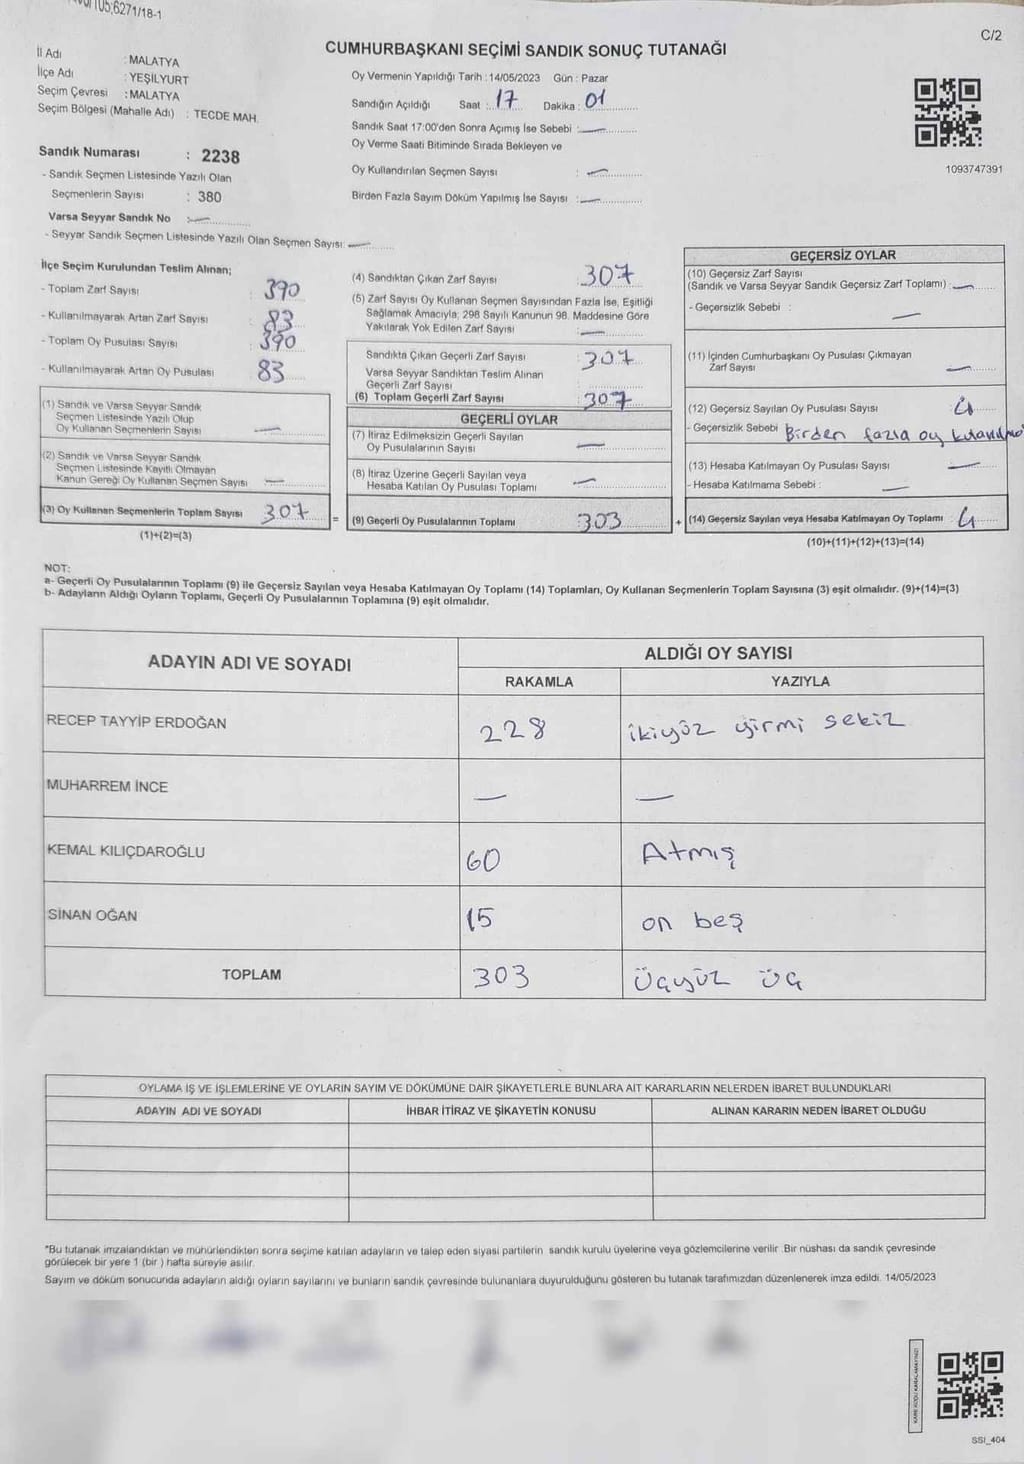 6271/18-1
C/2
CUMHURBAŞKANI SEÇİMİ SANDIK SONUÇ TUTANAĞI
İl Adı : MALATYA
İlçe Adı : YEŞİLYURT
Seçim Çevresi : MALATYA
Seçim Bölgesi (Mahalle Adı) : TECDE MAH.
Sandık Numarası : 2238
- Sandık Seçmen Listesinde Yazılı Olan
Seçmenlerin Sayısı : 380
Varsa Seyyar Sandık No : —
- Seyyar Sandık Seçmen Listesinde Yazılı Olan Seçmen Sayısı: —
Oy Vermenin Yapıldığı Tarih : 14/05/2023 Gün : Pazar
Sandığın Açıldığı Saat : 17 Dakika : 01
Sandık Saat 17:00'den Sonra Açımış İse Sebebi : —
Oy Verme Saati Bitiminde Sırada Bekleyen ve
Oy Kullandırılan Seçmen Sayısı : —
Birden Fazla Sayım Döküm Yapılmış İse Sayısı : —
1093747391
İlçe Seçim Kurulundan Teslim Alınan;
- Toplam Zarf Sayısı : 390
- Kullanılmayarak Artan Zarf Sayısı : 83
- Toplam Oy Pusulası Sayısı : 390
- Kullanılmayarak Artan Oy Pusulası : 83
(1) Sandık ve Varsa Seyyar Sandık
Seçmen Listesinde Yazılı Olup
Oy Kullanan Seçmenlerin Sayısı —
(2) Sandık ve Varsa Seyyar Sandık
Seçmen Listesinde Kayıtlı Olmayan
Kanun Gereği Oy Kullanan Seçmen Sayısı —
(3) Oy Kullanan Seçmenlerin Toplam Sayısı 307
(1)+(2)=(3)
=
(4) Sandıktan Çıkan Zarf Sayısı : 307
(5) Zarf Sayısı Oy Kullanan Seçmen Sayısından Fazla İse, Eşitliği
Sağlamak Amacıyla; 298 Sayılı Kanunun 98. Maddesine Göre
Yakılarak Yok Edilen Zarf Sayısı : —
Sandıkta Çıkan Geçerli Zarf Sayısı : 307
Varsa Seyyar Sandıktan Teslim Alınan
Geçerli Zarf Sayısı :
(6) Toplam Geçerli Zarf Sayısı : 307
GEÇERLİ OYLAR
(7) İtiraz Edilmeksizin Geçerli Sayılan
Oy Pusulalarının Sayısı : —
(8) İtiraz Üzerine Geçerli Sayılan veya
Hesaba Katılan Oy Pusulası Toplamı : —
(9) Geçerli Oy Pusulalarının Toplamı : 303
+
GEÇERSİZ OYLAR
(10) Geçersiz Zarf Sayısı
(Sandık ve Varsa Seyyar Sandık Geçersiz Zarf Toplamı) : —
- Geçersizlik Sebebi : —
(11) İçinden Cumhurbaşkanı Oy Pusulası Çıkmayan
Zarf Sayısı —
(12) Geçersiz Sayılan Oy Pusulası Sayısı : 4
- Geçersizlik Sebebi Birden fazla oy
(13) Hesaba Katılmayan Oy Pusulası Sayısı : —
- Hesaba Katılmama Sebebi : —
(14) Geçersiz Sayılan veya Hesaba Katılmayan Oy Toplamı : 4
(10)+(11)+(12)+(13)=(14)
NOT:
a- Geçerli Oy Pusulalarının Toplamı (9) ile Geçersiz Sayılan veya Hesaba Katılmayan Oy Toplamı (14) Toplamları, Oy Kullanan Seçmenlerin Toplam Sayısına (3) eşit olmalıdır. (9)+(14)=(3)
b- Adayların Aldığı Oyların Toplamı, Geçerli Oy Pusulalarının Toplamına (9) eşit olmalıdır.
ADAYIN ADI VE SOYADI
ALDIĞI OY SAYISI
RAKAMLA YAZIYLA
RECEP TAYYİP ERDOĞAN 228 ikiyüz yirmi sekiz
MUHARREM İNCE — —
KEMAL KILIÇDAROĞLU 60 Atmış
SİNAN OĞAN 15 on beş
TOPLAM 303 Üçyüz üç
OYLAMA İŞ VE İŞLEMLERİNE VE OYLARIN SAYIM VE DÖKÜMÜNE DAİR ŞİKAYETLERLE BUNLARA AİT KARARLARIN NELERDEN İBARET BULUNDUKLARI
ADAYIN ADI VE SOYADI İHBAR İTİRAZ VE ŞİKAYETİN KONUSU ALINAN KARARIN NEDEN İBARET OLDUĞU
*Bu tutanak imzalandıktan ve mühürlendikten sonra seçime katılan adayların ve talep eden siyasi partilerin sandık kurulu üyelerine veya gözlemcilerine verilir. Bir nüshası da sandık çevresinde
görülecek bir yere 1 (bir ) hafta süreyle asılır.
Sayım ve döküm sonucunda adayların aldığı oyların sayılarını ve bunların sandık çevresinde bulunanlara duyurulduğunu gösteren bu tutanak tarafımızdan düzenlenerek imza edildi. 14/05/2023
KARE KODU KARALAMAYINIZ!
SSI_404